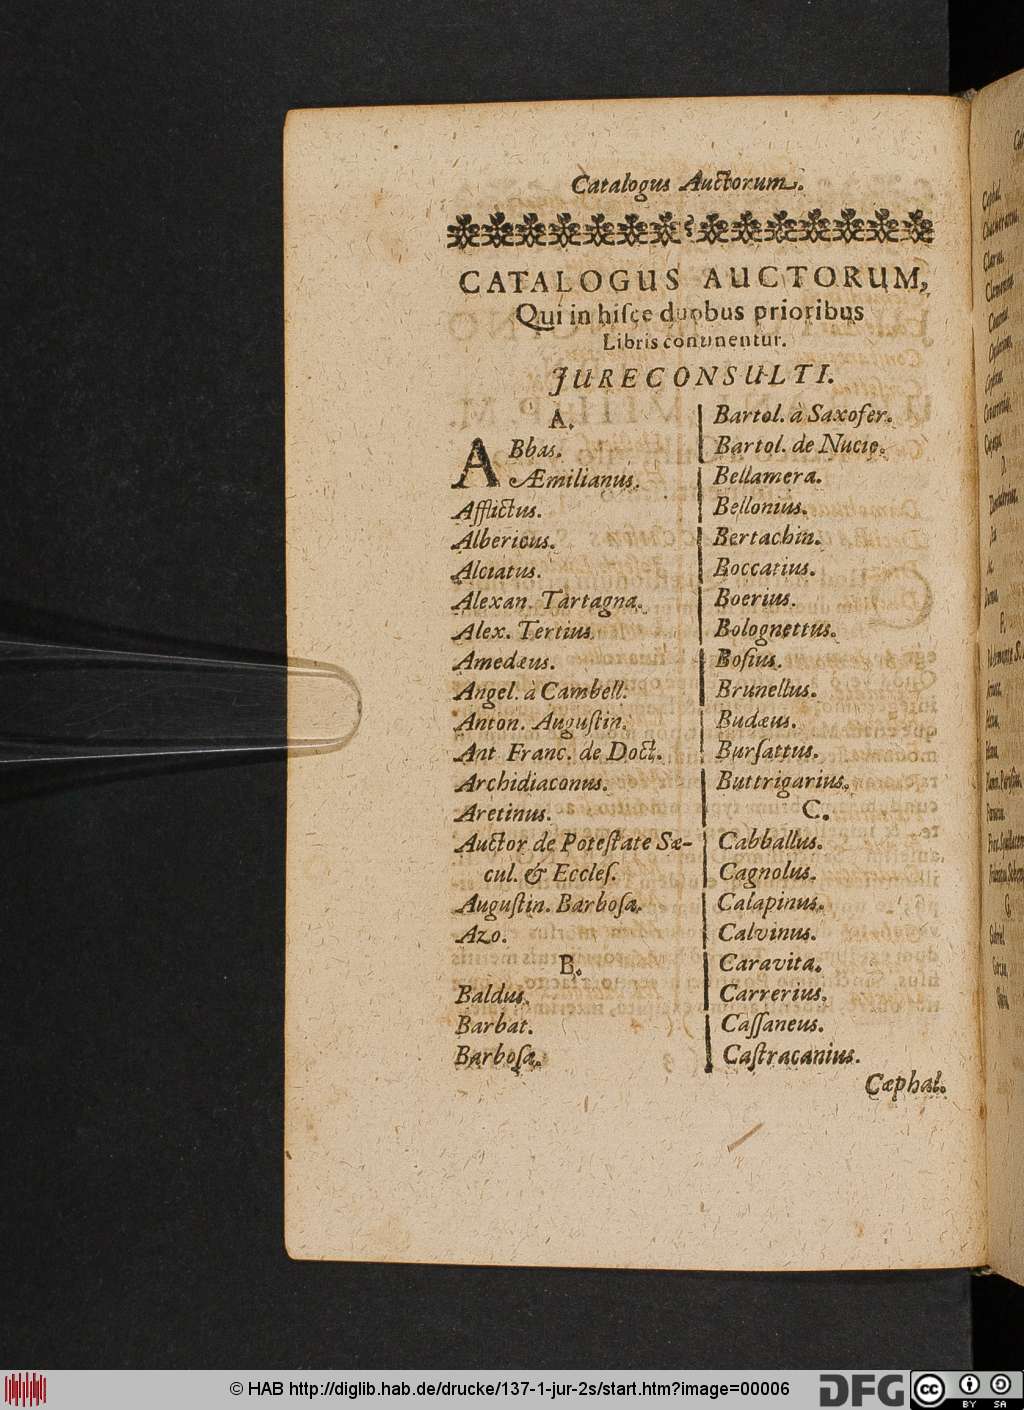 Catalogus Auctorum.
CATALOGUS AUCTORUM,
Qui in hiſce duobus prioribus
Libris continentur.
JURECONSULTI.
A.
ABbas.
Æmilianus.
Afflictus.
Albericus.
Alciatus.
Alexan. Tartagna.
Alex. Tertius.
Amedæus.
Angel. à Cambell.
Anton. Auguſtin.
Ant Franc. de Doct.
Archidiaconus.
Aretinus.
Auctor de Poteſtate Sæ-
cul. & Eccleſ.
Auguſtin. Barboſa.
Azo.
B.
Baldus.
Barbat.
Barboſa.
Bartol. à Saxofer.
Bartol. de Nucio.
Bellamera.
Bellonius.
Bertachin.
Boccatius.
Boerius.
Bolognettus.
Boſius.
Brunellus.
Budæus.
Burſattus.
Buttrigarius.
C.
Cabballus.
Cagnolus.
Calapinus.
Calvinus.
Caravita.
Carrerius.
Caſſaneus.
Caſtracanius.
Cæphal.
© HAB http://diglib.hab.de/drucke/137-1-jur-2s/start.htm?image=00006
DFG
cc BY SA